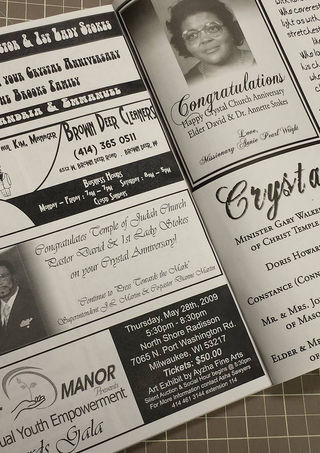 & 1st Lady Stokes
your Crystal Anniversary
The Brooks Family
& Emmanuel
Kim, Manager
Brown Deer Cleaners
(414) 365 0511
W. Brown Deer Road, Brown Deer, WI
Business Hours
Monday - Friday: 7am - 7pm Saturday: 8am - 5pm
Closed Sundays
Congratulates Temple of Judah Church
Pastor David & 1st Lady Stokes
on your Crystal Anniversary!
"Continue to Press Towards the Mark"
Superintendent J.L. Martin & Evangelist Dianne Martin
MANOR
Presents
Youth Empowerment
Gala
Thursday, May 28th, 2009
5:30pm - 8:30pm
North Shore Radisson
7065 N. Port Washington Rd.
Milwaukee, WI 53217
Tickets: $50.00
Art Exhibit by Ayzha Fine Arts
Silent Auction & Social Hour begins @ 5:30pm
For More Information contact Asha Sawyers
414 461 3144 extension 114
Congratulations
Happy Crystal Church Anniversary
Elder David & Dr. Annette Stokes
Love,
Missionary Annie Pearl Wright
Who
light as with
Crysta
Minister Gary
of Christ Temple
Doris
Constance (
Mr. & Mrs.
of
Elder &
of